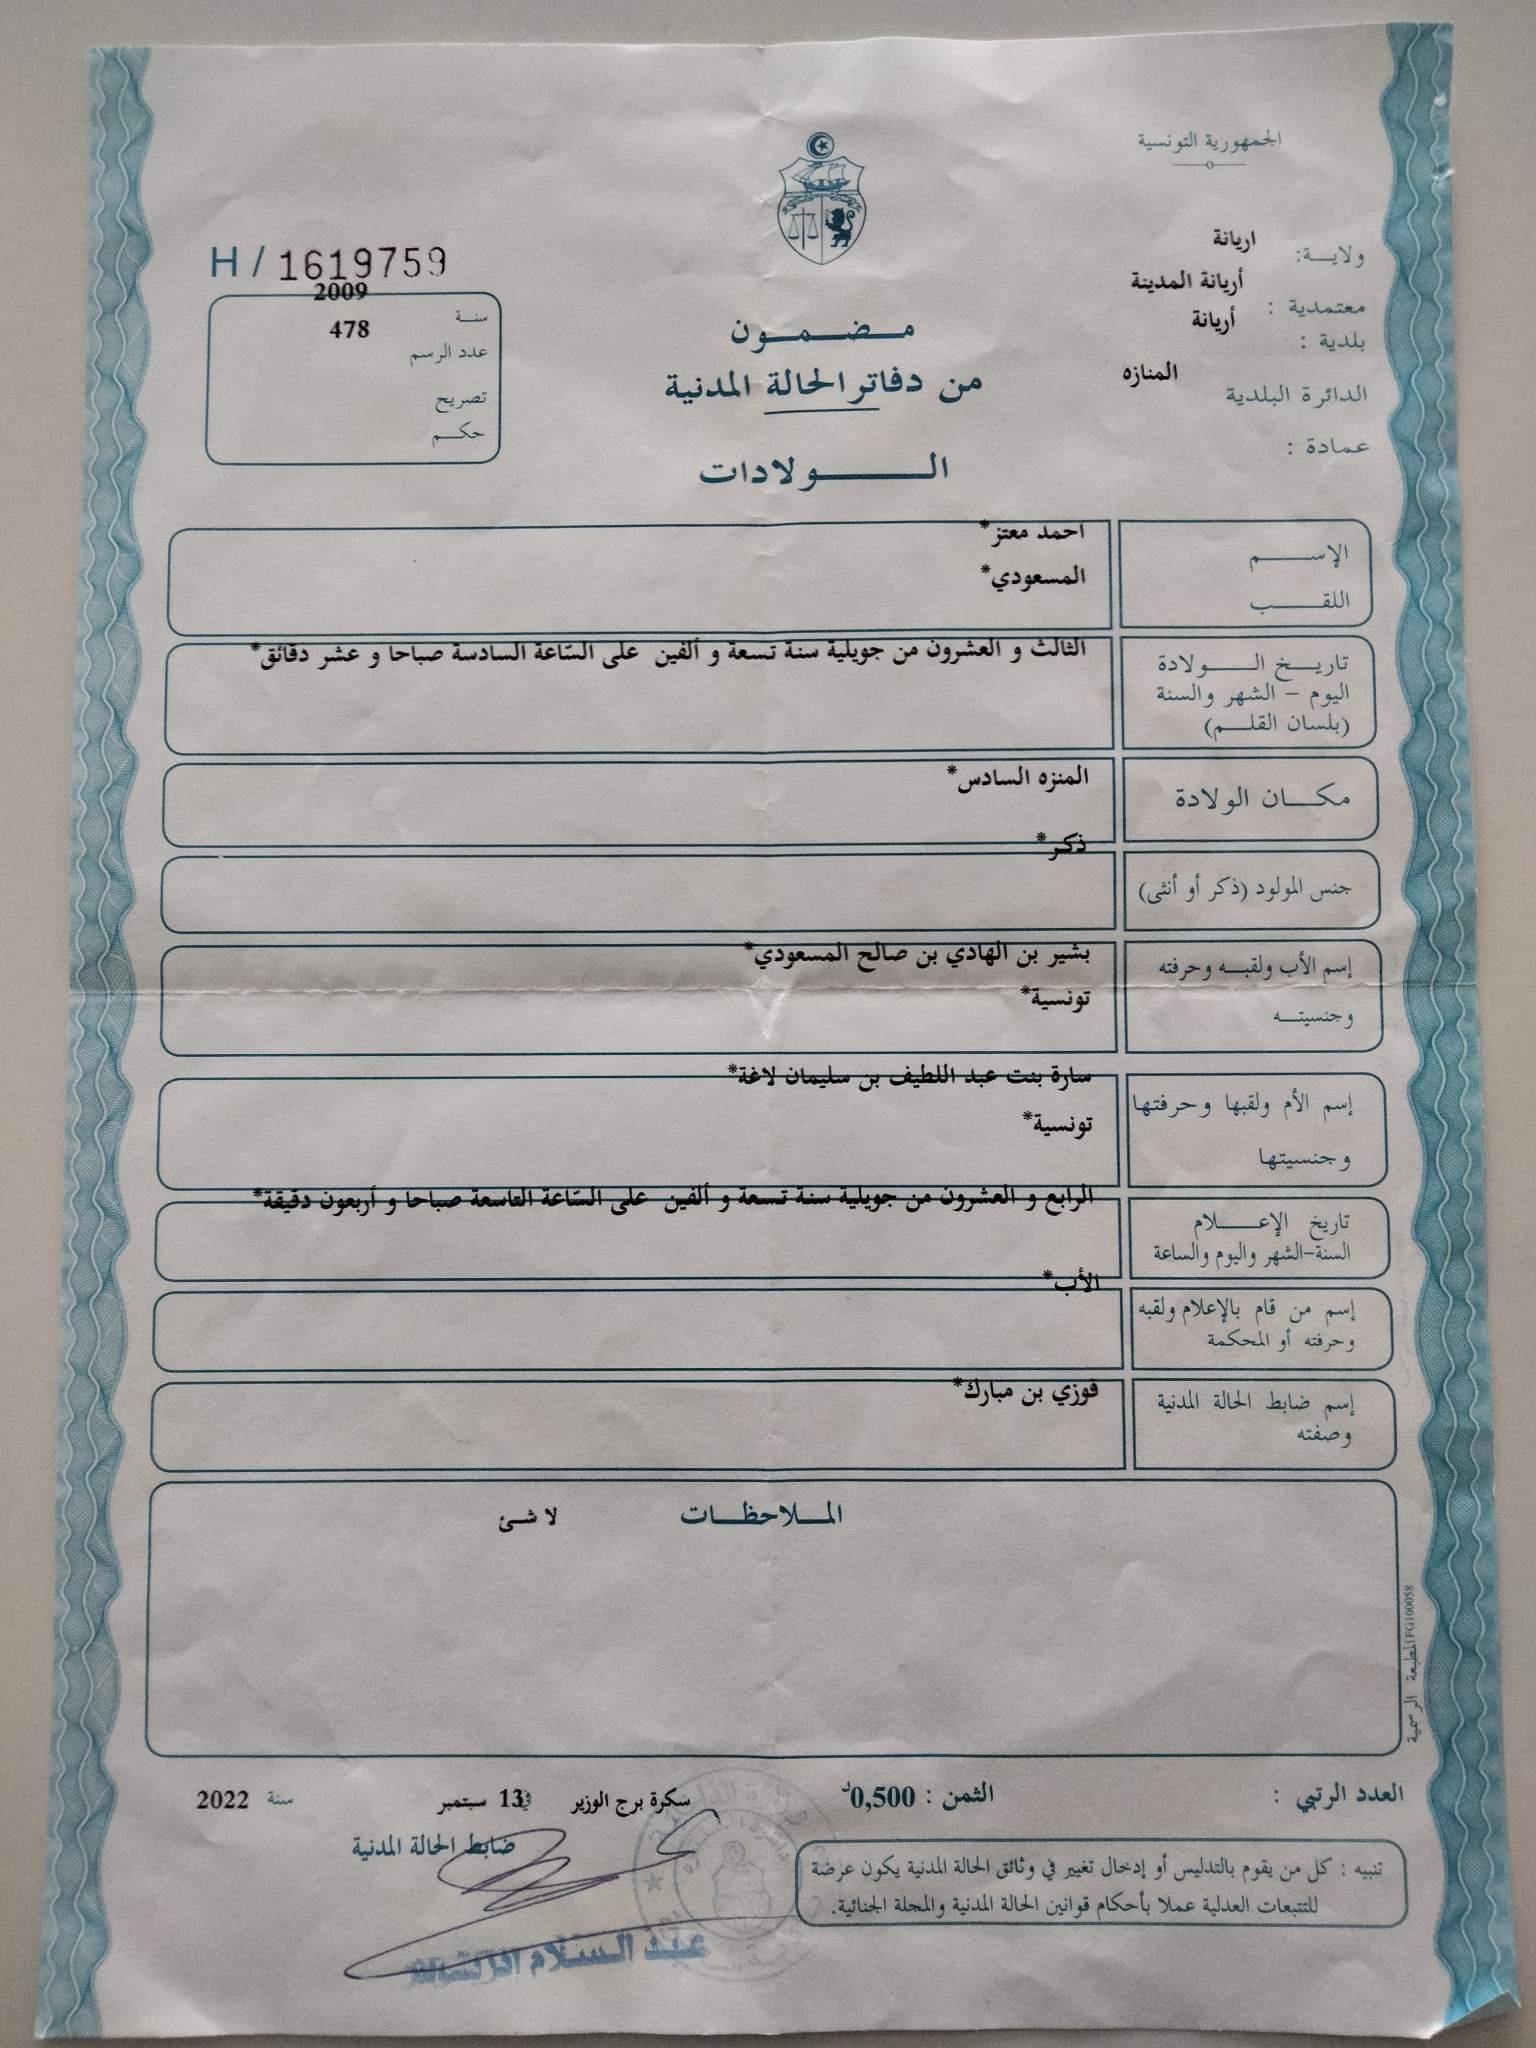 الجمهورية التونسية
ولايـــة: اريانة
معتمدية : أريانة المدينة
بلدية : أريانة
الدائرة البلدية المنازه
عمادة :
مـضـمـون
من دفاتر الحالة المدنية
الـــولادات
H / 1619759
سنة 2009
عدد الرسم 478
تصريح
حكم
الإســـم احمد معتز*
اللقـــب المسعودي*
تاريــخ الـــولادة الثالث و العشرون من جويلية سنة تسعة و ألفين على السّاعة السادسة صباحا و عشر دقائق*
اليوم – الشهر والسنة
(بلسان القلـم)
مكـــان الولادة المنزه السادس*
جنس المولود (ذكر أو أنثى) ذكر*
إسم الأب ولقبـه وحرفته بشير بن الهادي بن صالح المسعودي*
وجنسيتـه تونسية*
إسم الأم ولقبها وحرفتها سارة بنت عبد اللطيف بن سليمان لاغة*
وجنسيتها تونسية*
تاريخ الإعـــلام الرابع و العشرون من جويلية سنة تسعة و ألفين على السّاعة التاسعة صباحا و أربعون دقيقة*
السنة-الشهر واليوم والساعة
إسم من قام بالإعلام ولقبه الأب*
وحرفته أو المحكمة
إسم ضابط الحالة المدنية فوزي بن مبارك*
وصفته
المـلاحظـات لا شئ
المطبعة الرسمية FG100058
العدد الرتبي :
الثمن : 0,500د
سكرة برج الوزير في 13 سبتمبر سنة 2022
ضابط الحالة المدنية
تنبيه : كل من يقوم بالتدليس أو إدخال تغيير في وثائق الحالة المدنية يكون عرضة
للتتبعات العدلية عملا بأحكام قوانين الحالة المدنية والمجلة الجنائية.
عبد السلام